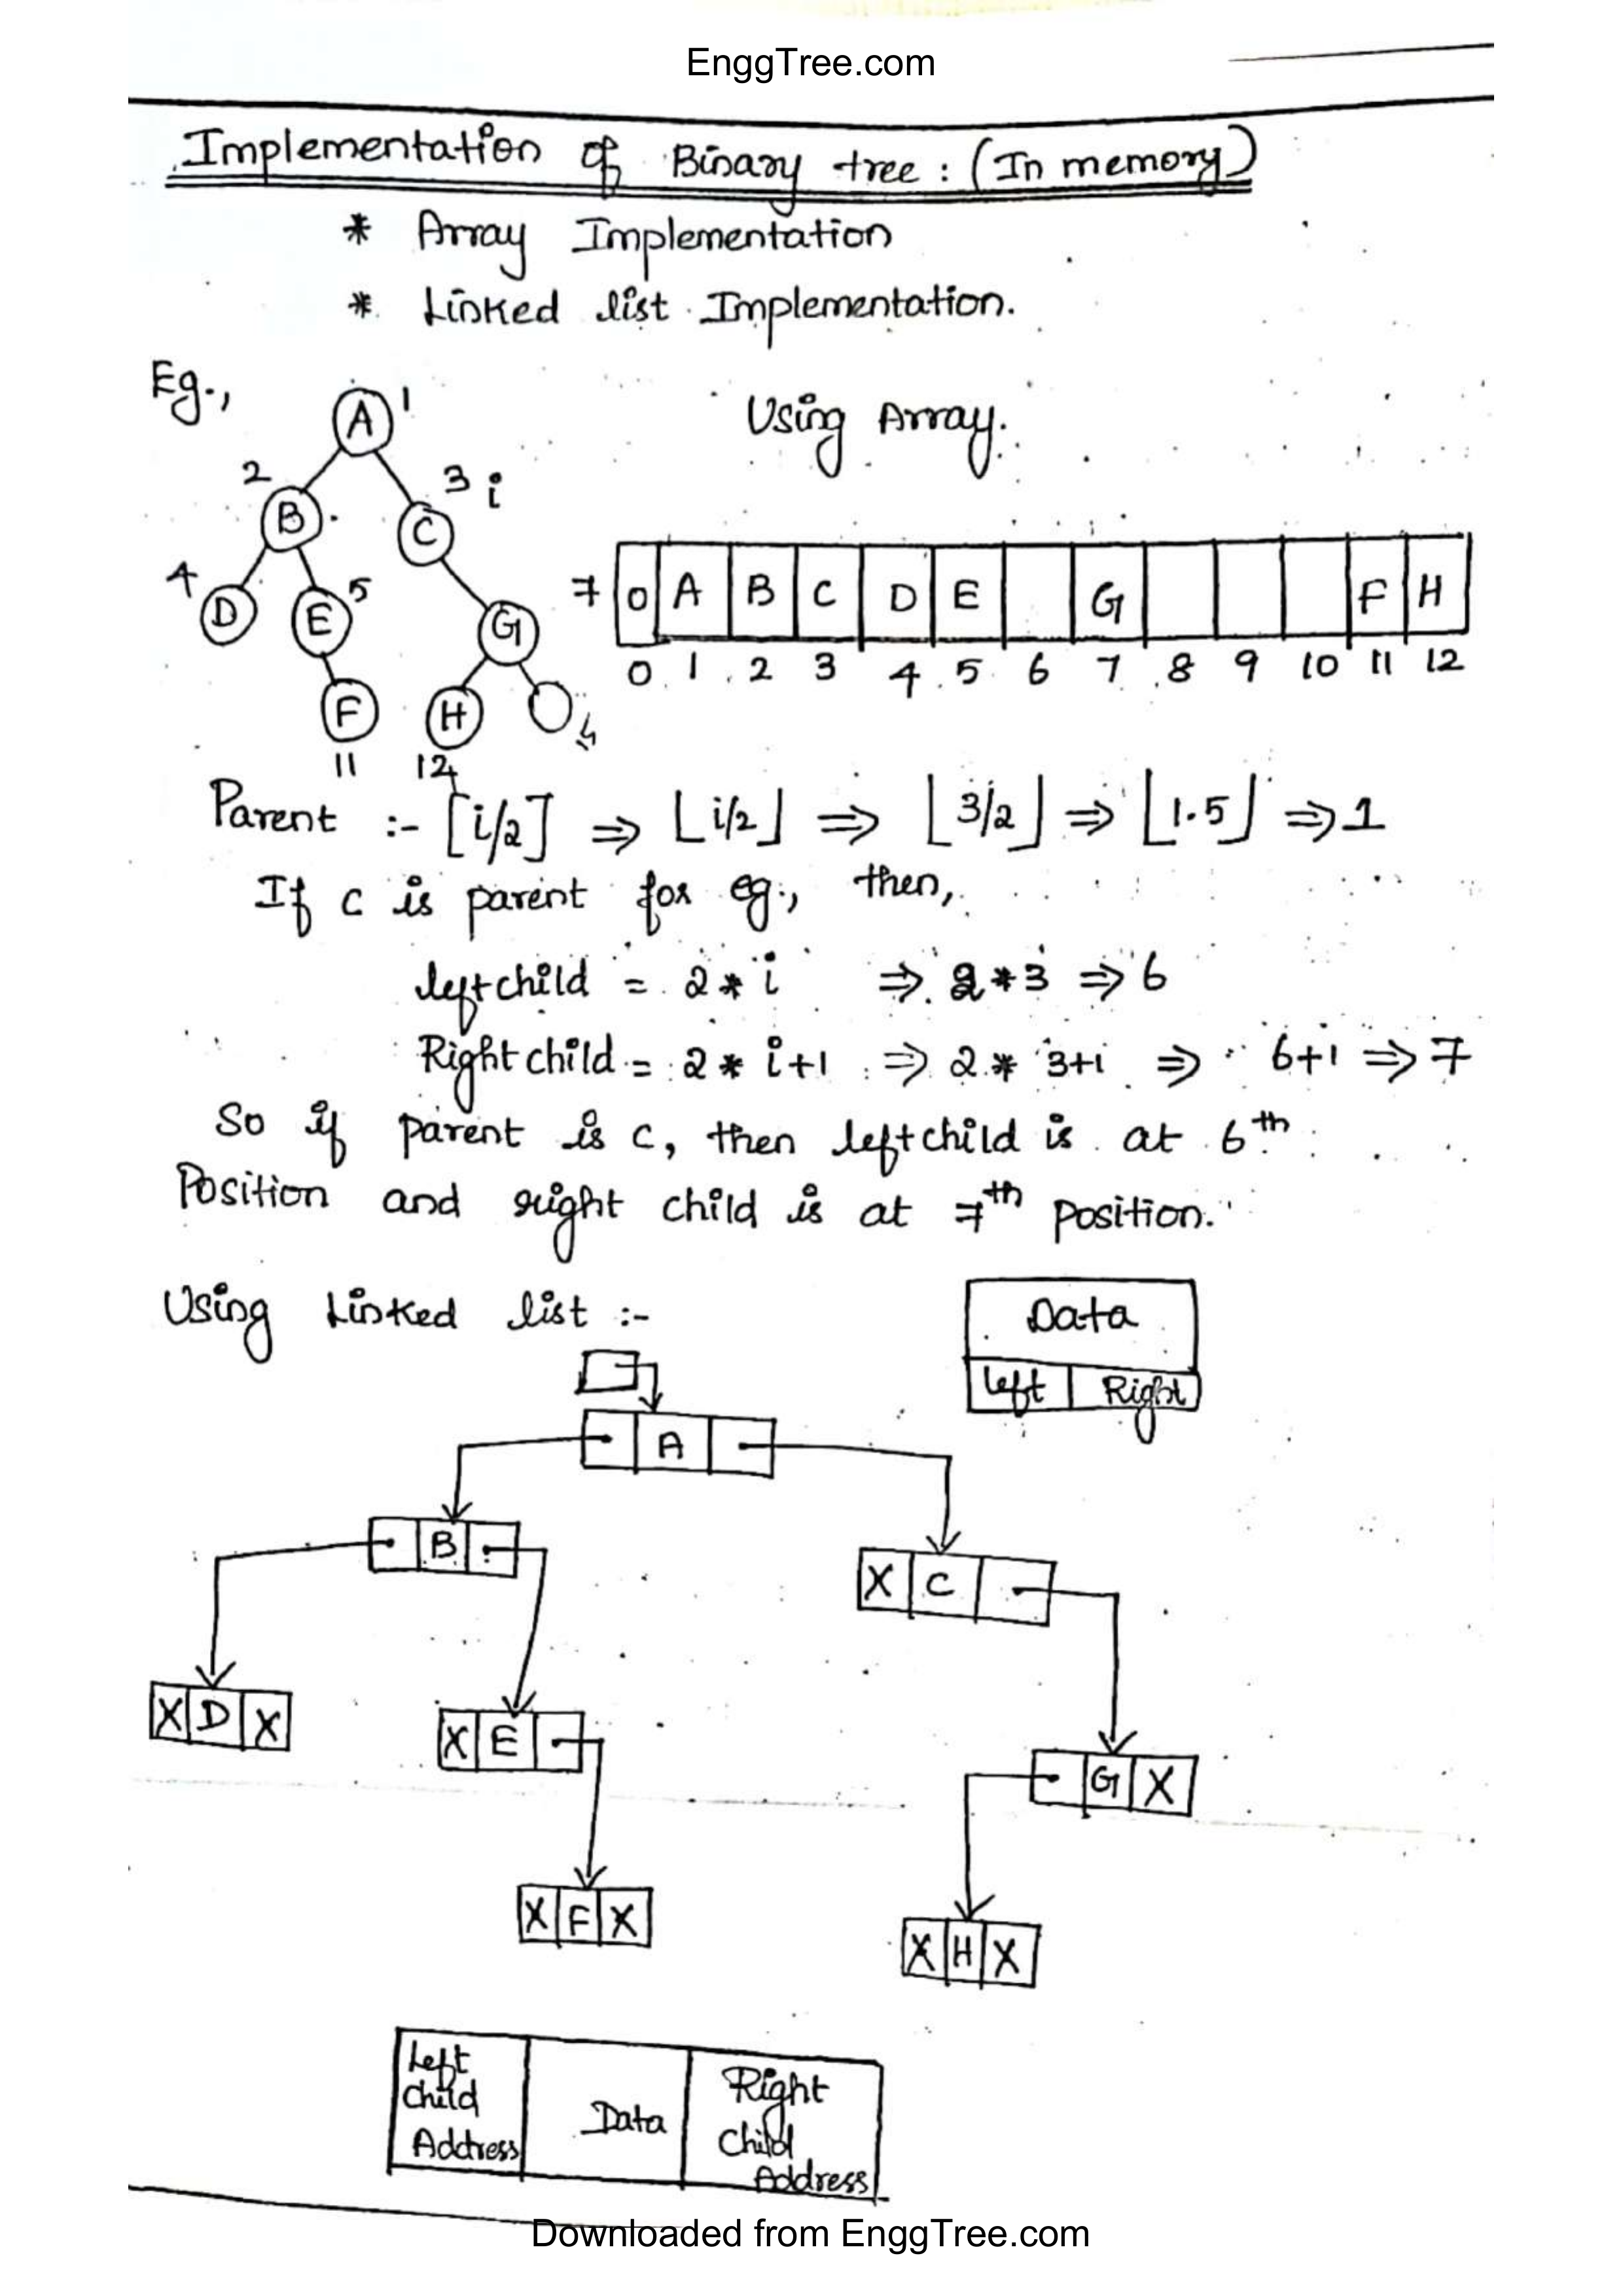 EnggTree.com
Implementation of Binary tree : (In memory)
* Array Implementation
* Linked list Implementation.
Eg.,
Using Array.
A 1
2 3 i
B C
4 5 7
D E G
F H
11 12
0 A B C D E G F H
0 1 2 3 4 5 6 7 8 9 10 11 12
Parent :- [i/2] ⇒ ⌊i/2⌋ ⇒ ⌊3/2⌋ ⇒ ⌊1.5⌋ ⇒ 1
If C is parent for eg., then,
leftchild = 2 * i ⇒ 2 * 3 ⇒ 6
Right child = 2 * i+1 ⇒ 2 * 3+1 ⇒ 6+1 ⇒ 7
So if parent is C, then leftchild is at 6th
Position and right child is at 7th position.
Using Linked list :-
Data
Left Right
A
B
X C
X D X
X E
G X
X F X
X H X
Left Child Address
Data
Right Child Address
Downloaded from EnggTree.com